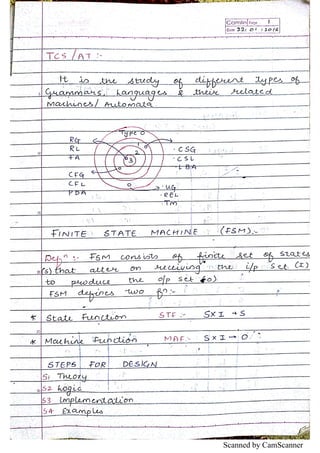 Page 1
Date 22 : 01 : 2018
TCS / AT :-
It is the study of different types of
Grammars, Languages & their related
Machines / Automata
Type 0
1
2
3
RG
RL
FA
CFG
CFL
PDA
CSG
CSL
LBA
UG
REL
TM
FINITE STATE MACHINE (FSM):-
Defn :- FSM consists of finite set of states
(s) that alter on receiving the i/p set (I)
to produce the o/p set (O)
FSM defines two fn:-
* State Function STF :- S X I → S
* Machine Function MAF :- S X I → O
STEPS FOR DESIGN
S1 Theory
S2 Logic
S3 Implementation
S4 Examples
Scanned by CamScanner